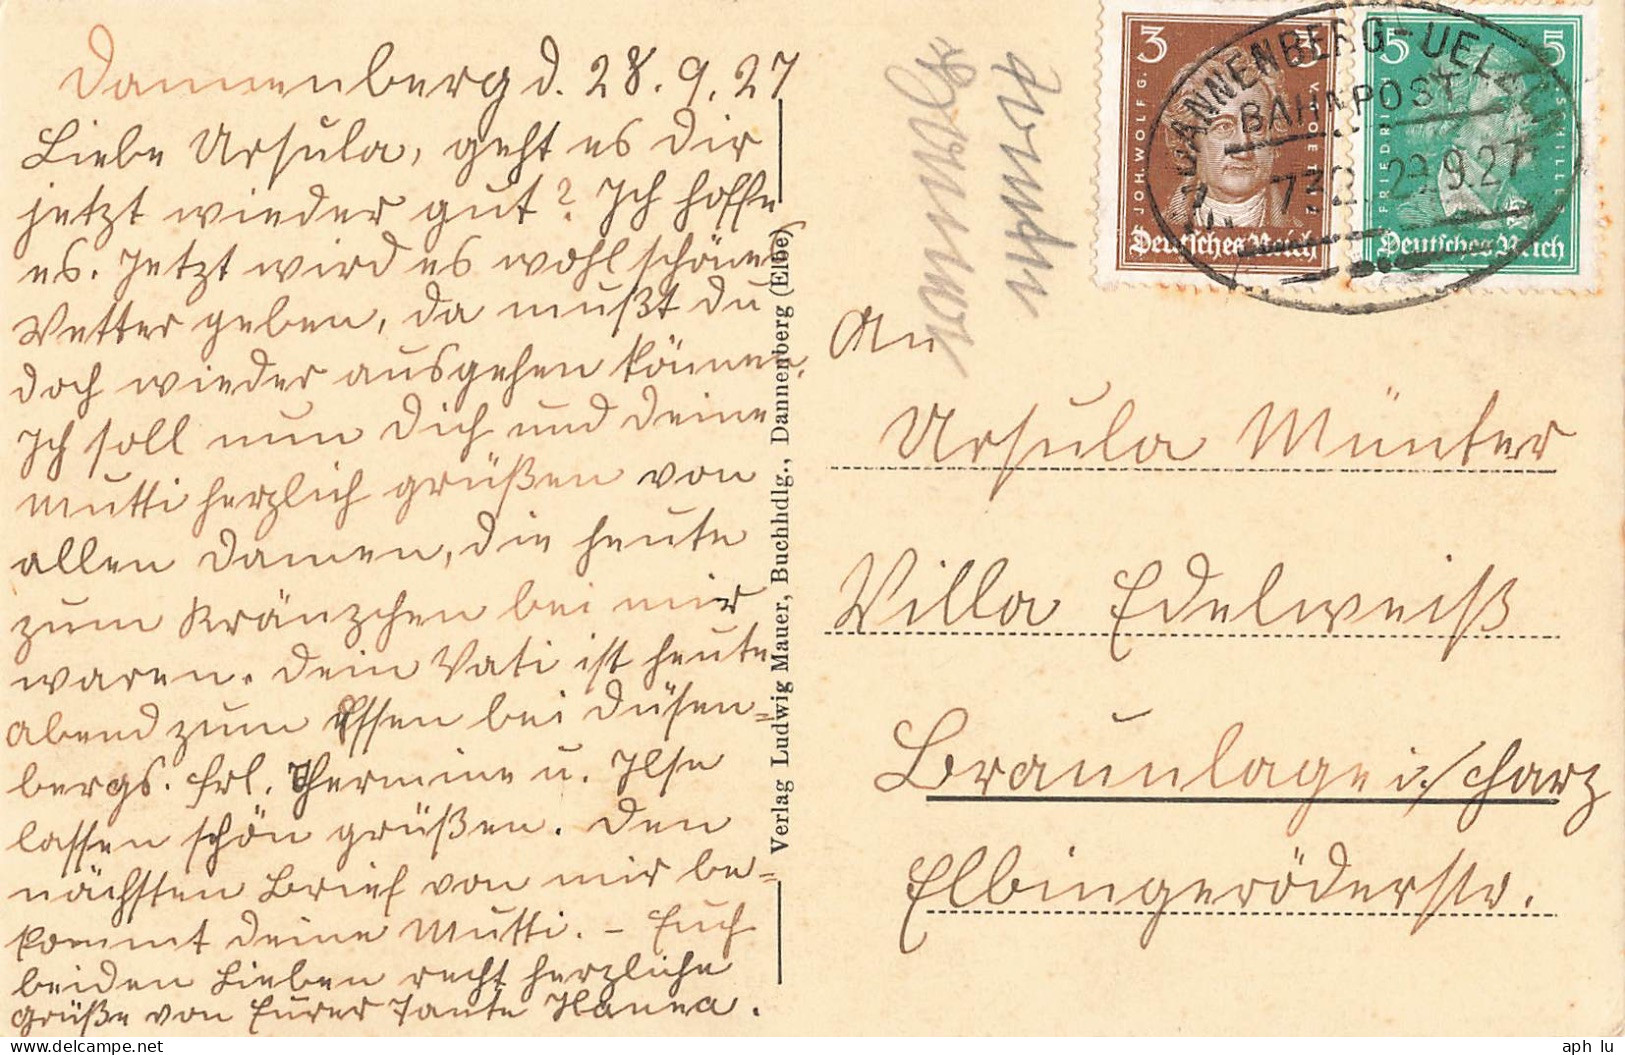 Dannenberg d. 28.9.27
Liebe Ursula, geht es Dir
jetzt wieder gut? Ich hoffe
es. Jetzt wird es wohl schönes
Wetter geben, da mußt du
doch wieder ausgehen können.
Ich soll nun Dich und Deine
Mutti herzlich grüßen von
allen Damen, die heute
zum Kränzchen bei mir
waren. Dein Vati ist heute
abend zum Essen bei Düsen=
bergs. Frl. Hermine u. Ilse
lassen schön grüßen. Den
nächsten Brief von mir be=
kommt Deine Mutti. – Euch
beiden Lieben recht herzliche
Grüße von Eurer Tante Hanna.
Verlag Ludwig Mauer, Buchhdlg., Dannenberg (Elbe)
3 3
JOH. WOLFG. V. GOETHE
Deutsches Reich
5 5
FRIEDRICH V. SCHILLER
Deutsches Reich
DANNENBERG-UELZEN
BAHNPOST
29.9.27
An
Ursula Münter
Villa Edelweiß
Braunlage i/Harz
Elbingeröderstr.
aph lu